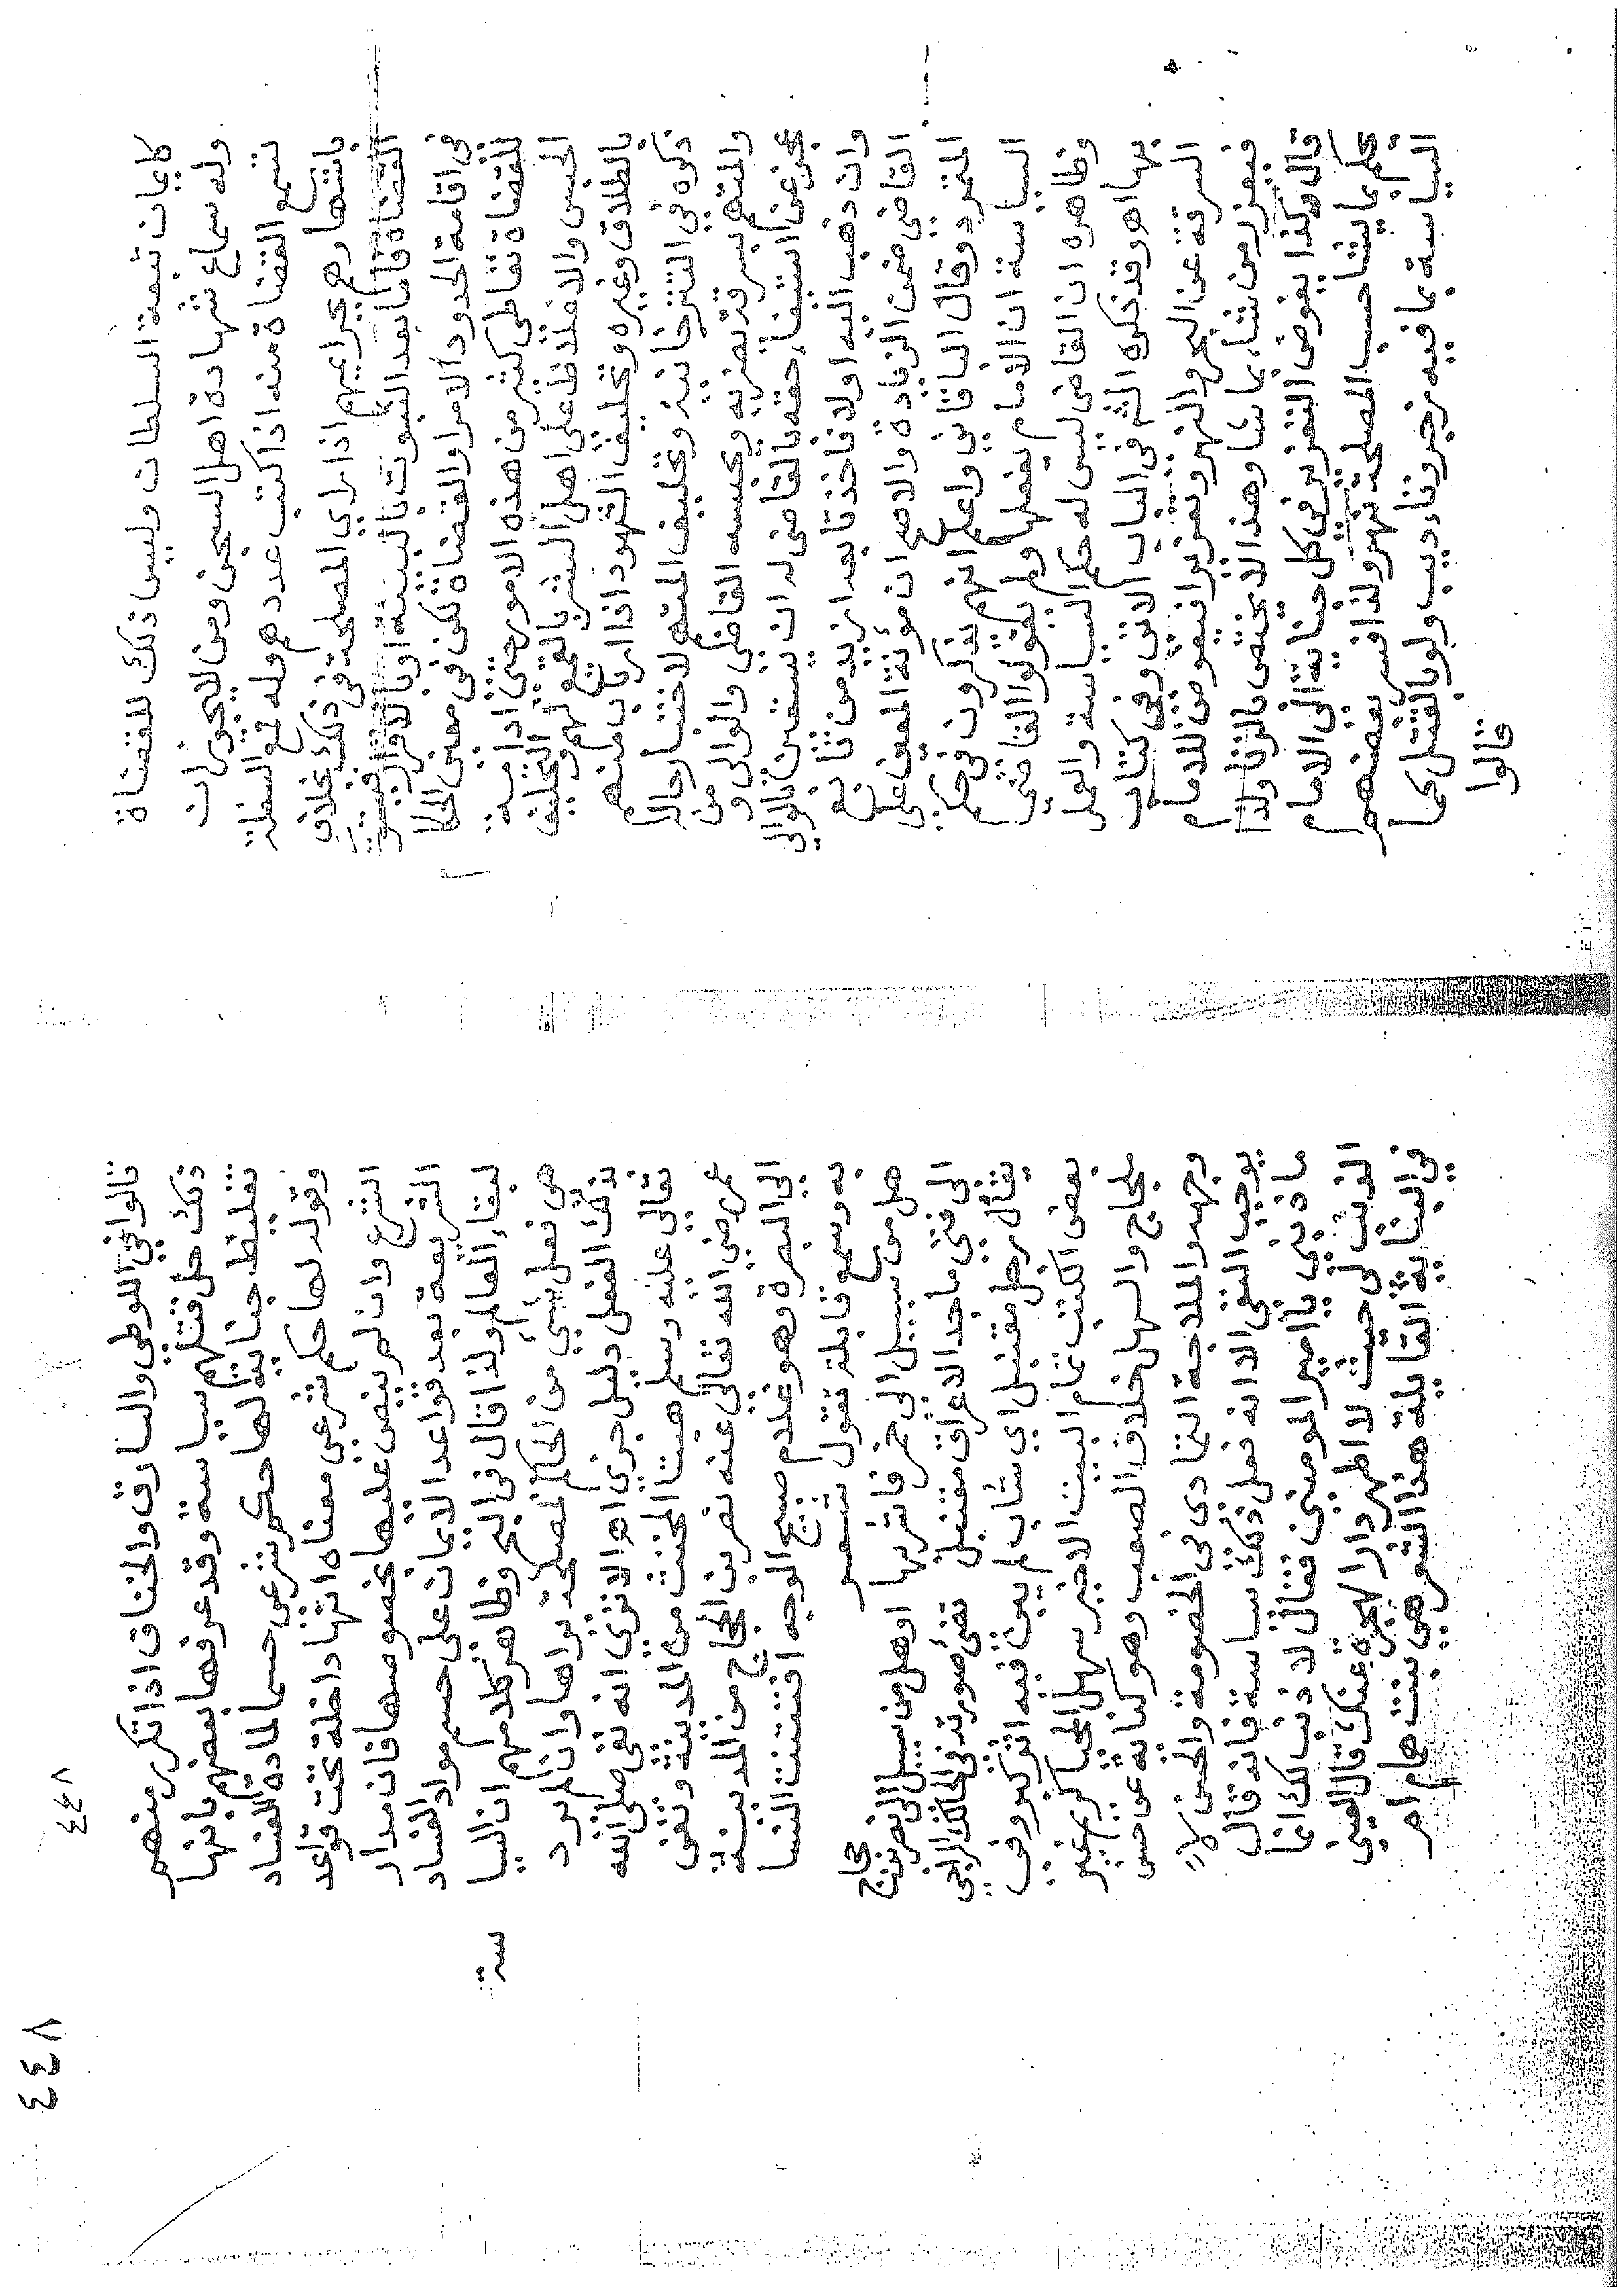 كايمان تبعة السلطان وليس ذلك للقضاة
وله سماع شهادة اهل السجن ومن لا يجوز ان
تسمع القضاة منه اذا كتب عددهم وله قمع السفلة
باشهارهم بجرايمهم اذا راي المصلحة في ذلك بخلاف
القضاة فاما بعد الثبوت بالبينة او بالاقرار فيستوي
في اقامة الحدود الامرا والقضاة لكن في معين الحكام
للقضاة تعاطي كثير من هذه الامور حتى ادامة
الحبس والاغلاظ على اهل الشر بالقمع لهم والتحليف
بالطلاق وغيره وتحليف الشهود اذا ارتاب منهم
ذكره في التترخانية وتحليف المتهم لاختبار حاله
والمتهم بسرقة يضربه ويحبسه القاضي والوالي ومن
عجز عن استيفاء حقه بالقاضي له ان يستعين بالوالي
وان ذهب اليه اولا فاخذ تابعه ازيد من
القاضي ضمن الزيادة والاصح ان مؤنة المعين على
المتمرد وقال الباقاني واعلم انهم يذكرون في حكم
السياسة ان الامام يفعلها ولم يقولوا القاضي
وظاهره ان القاضي ليس له حكم السياسة والعمل
بها اهـ وقد ذكره الشم في الباب الاتي وفي كتاب
السرقة عن البحر والنهر وتعزيرا فيفوض للامام
فيعزر من شاء بما شا وهذا لا يختص بالزنا ولذا
قال وكذا يفوض التعزير في كل جناية الى الامام
يحكم بما يشا حسب المصلحة نهر ولذا فسر بعضهم
السياسة بما فيه زجر وتاديب ولو بالقتل كما
قالوا
٤٤٨
٤٤٨
قالوا في اللوطي والسارق والخناق اذا تكرر منهم
ذلك حل قتلهم سياسة وقد عرفها بعضهم بانها
تغليظ جناية لها حكم شرعي حسما لمادة الفساد
وقوله لها حكم شرعي معناه انها داخلة تحت قواعد
الشرع وان لم ينص عليها بخصوصها فان مدار
الشريعة بعد قواعد الايمان على حسم مواد الفساد
لبقاء العالم ولذا قال في البحر وظاهر كلامهم ان السيا
سة
هي فعل شي من الحاكم لمصلحة يراها وان لم يرد
بذلك الفعل دليل جزي اهـ الا تري انه نفى صلى الله
تعالى عليه وسلم هيتا المخنث من المدينة ونفى
عمر رضي الله تعالى عنه نصر بن الحجاج من المدينة
الى البصرة وهو غلام صبيح الوجه افتتنت النسا
به وسمع قابلة تقول شعر
هل من سبيل الى خمر فاشربها اوهل من سبيل الى نصر بن حجاج
الى فتى ماجد الاعراق مقتبل
يقال رجل مقتبل اي شاب لم يبن فيه اثر كبر وفي
بعض الكتب تمام البيت الاخير سهل المحيا كريم غير
ملجاج والسهل خلاف الصعب وهو كناية عن حسن
وجهه والملاججة التمادي في الخصومة والحسن لا
يوجب النفي الا انه فعل ذلك سياسة فانه قال
ما ذنبي يا امير المومنين فقال لا ذنب لك انما
الذنب لي حيث لا اطهر دار الهجرة عنك قال العيني
في البناية القايلة هذا الشعر هي بنت همام ام